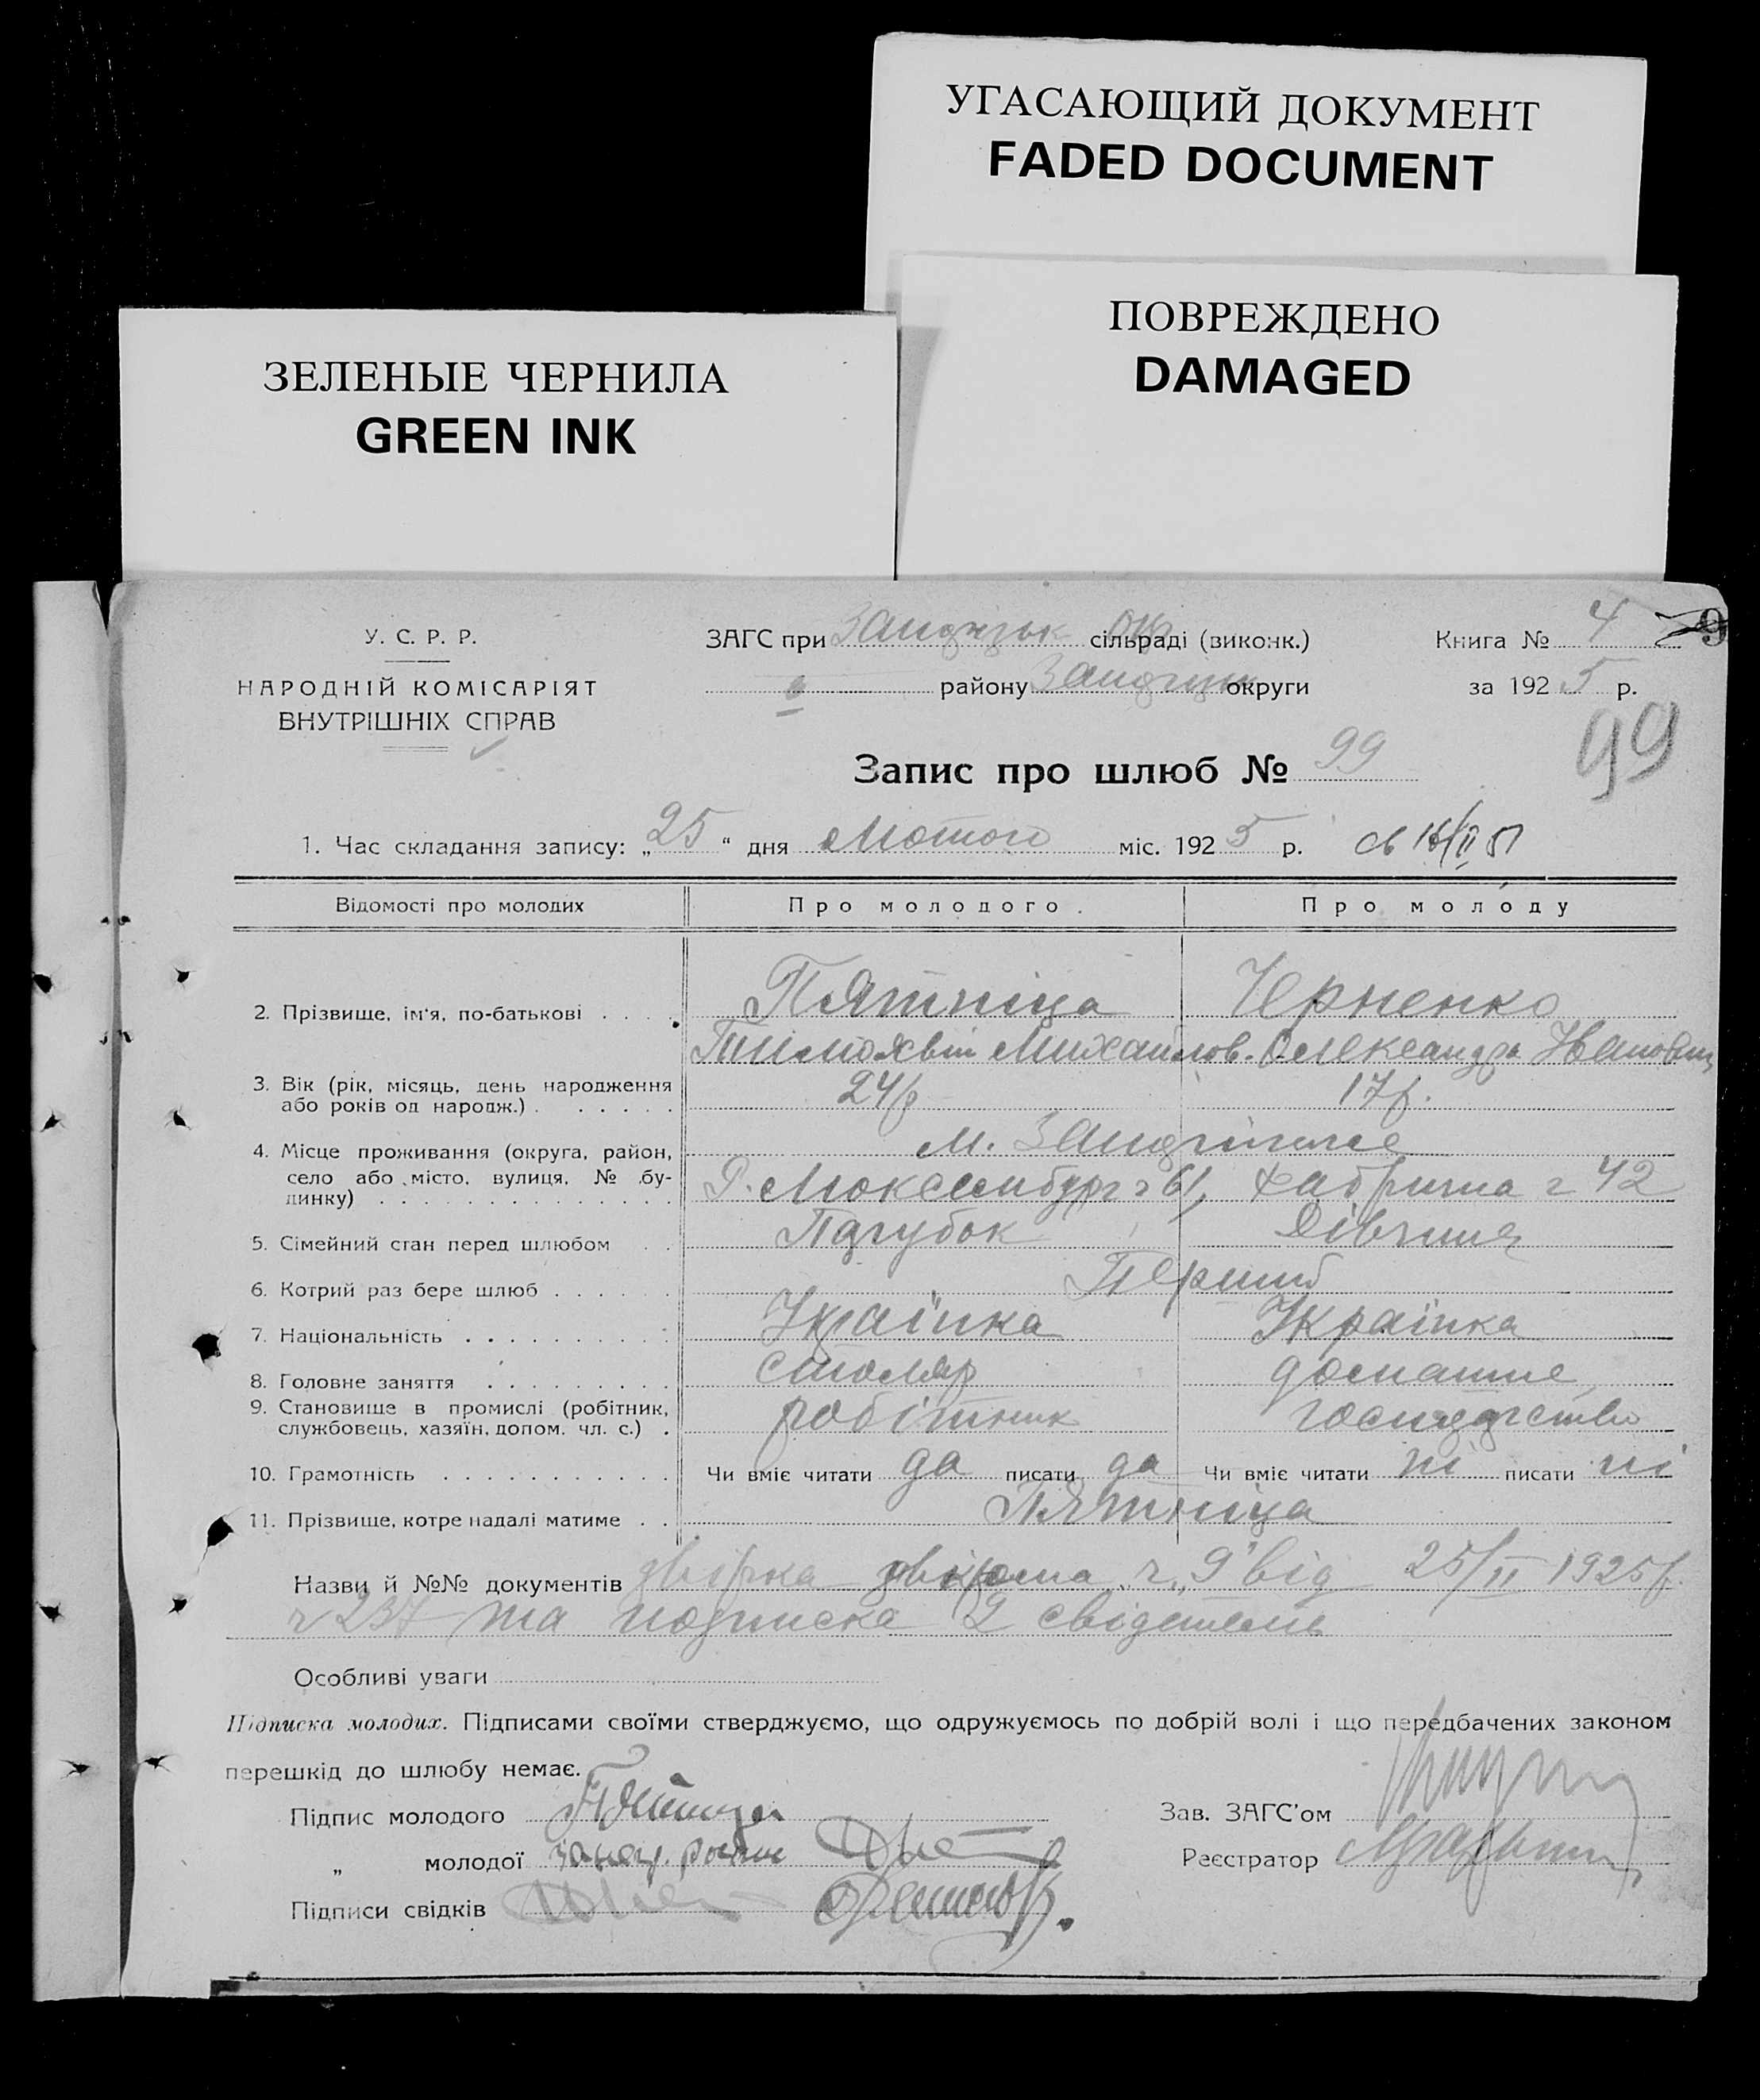 УГАСАЮЩИЙ ДОКУМЕНТ
FADED DOCUMENT
ПОВРЕЖДЕНО
DAMAGED
ЗЕЛЕНЫЕ ЧЕРНИЛА
GREEN INK
У. С. Р. Р.
НАРОДНІЙ КОМІСАРІЯТ
ВНУТРІШНІХ СПРАВ
ЗАГС при сільраді (виконк.)
району округи
Книга № 4
9
за 1925 р.
99
Запис про шлюб № 99
1. Час складання запису: „25“ дня Лютого міс. 1925 р.
Відомості про молодих Про молодого. Про молоду
2. Прізвище, ім'я, по-батькові . . . . Пятніца Черненко
Михайлов. Олександра
3. Вік (рік, місяць, день народження
або років од народж.) . . . . . . 24 р 17 р.
4. Місце проживання (округа, район,
село або місто, вулиця, № бу-
динку) . . . . . . . . . . . . . Р. Люксембург 61, Фабрична 42
5. Сімейний стан перед шлюбом . . Парубок Дівчина
6. Котрий раз бере шлюб . . . . . . Перший
7. Національність . . . . . . . . . Українка Українка
8. Головне заняття . . . . . . . . . столяр домашнє
9. Становище в промислі (робітник,
службовець, хазяїн, допом. чл. с.) . робітник господарство
10. Грамотність . . . . . . . . . . . Чи вміє читати да писати да Чи вміє читати ні писати ні
11. Прізвище, котре надалі матиме . . Пятніца
Назви й №№ документів від 25/II 1925 р
ч 237 та подписка 2 свідетель
Особливі уваги
Підписка молодих. Підписами своїми стверджуємо, що одружуємось по добрій волі і що передбачених законом
перешкід до шлюбу немає.
Підпис молодого
„ молодої
Підписи свідків
Зав. ЗАГС'ом
Реєстратор